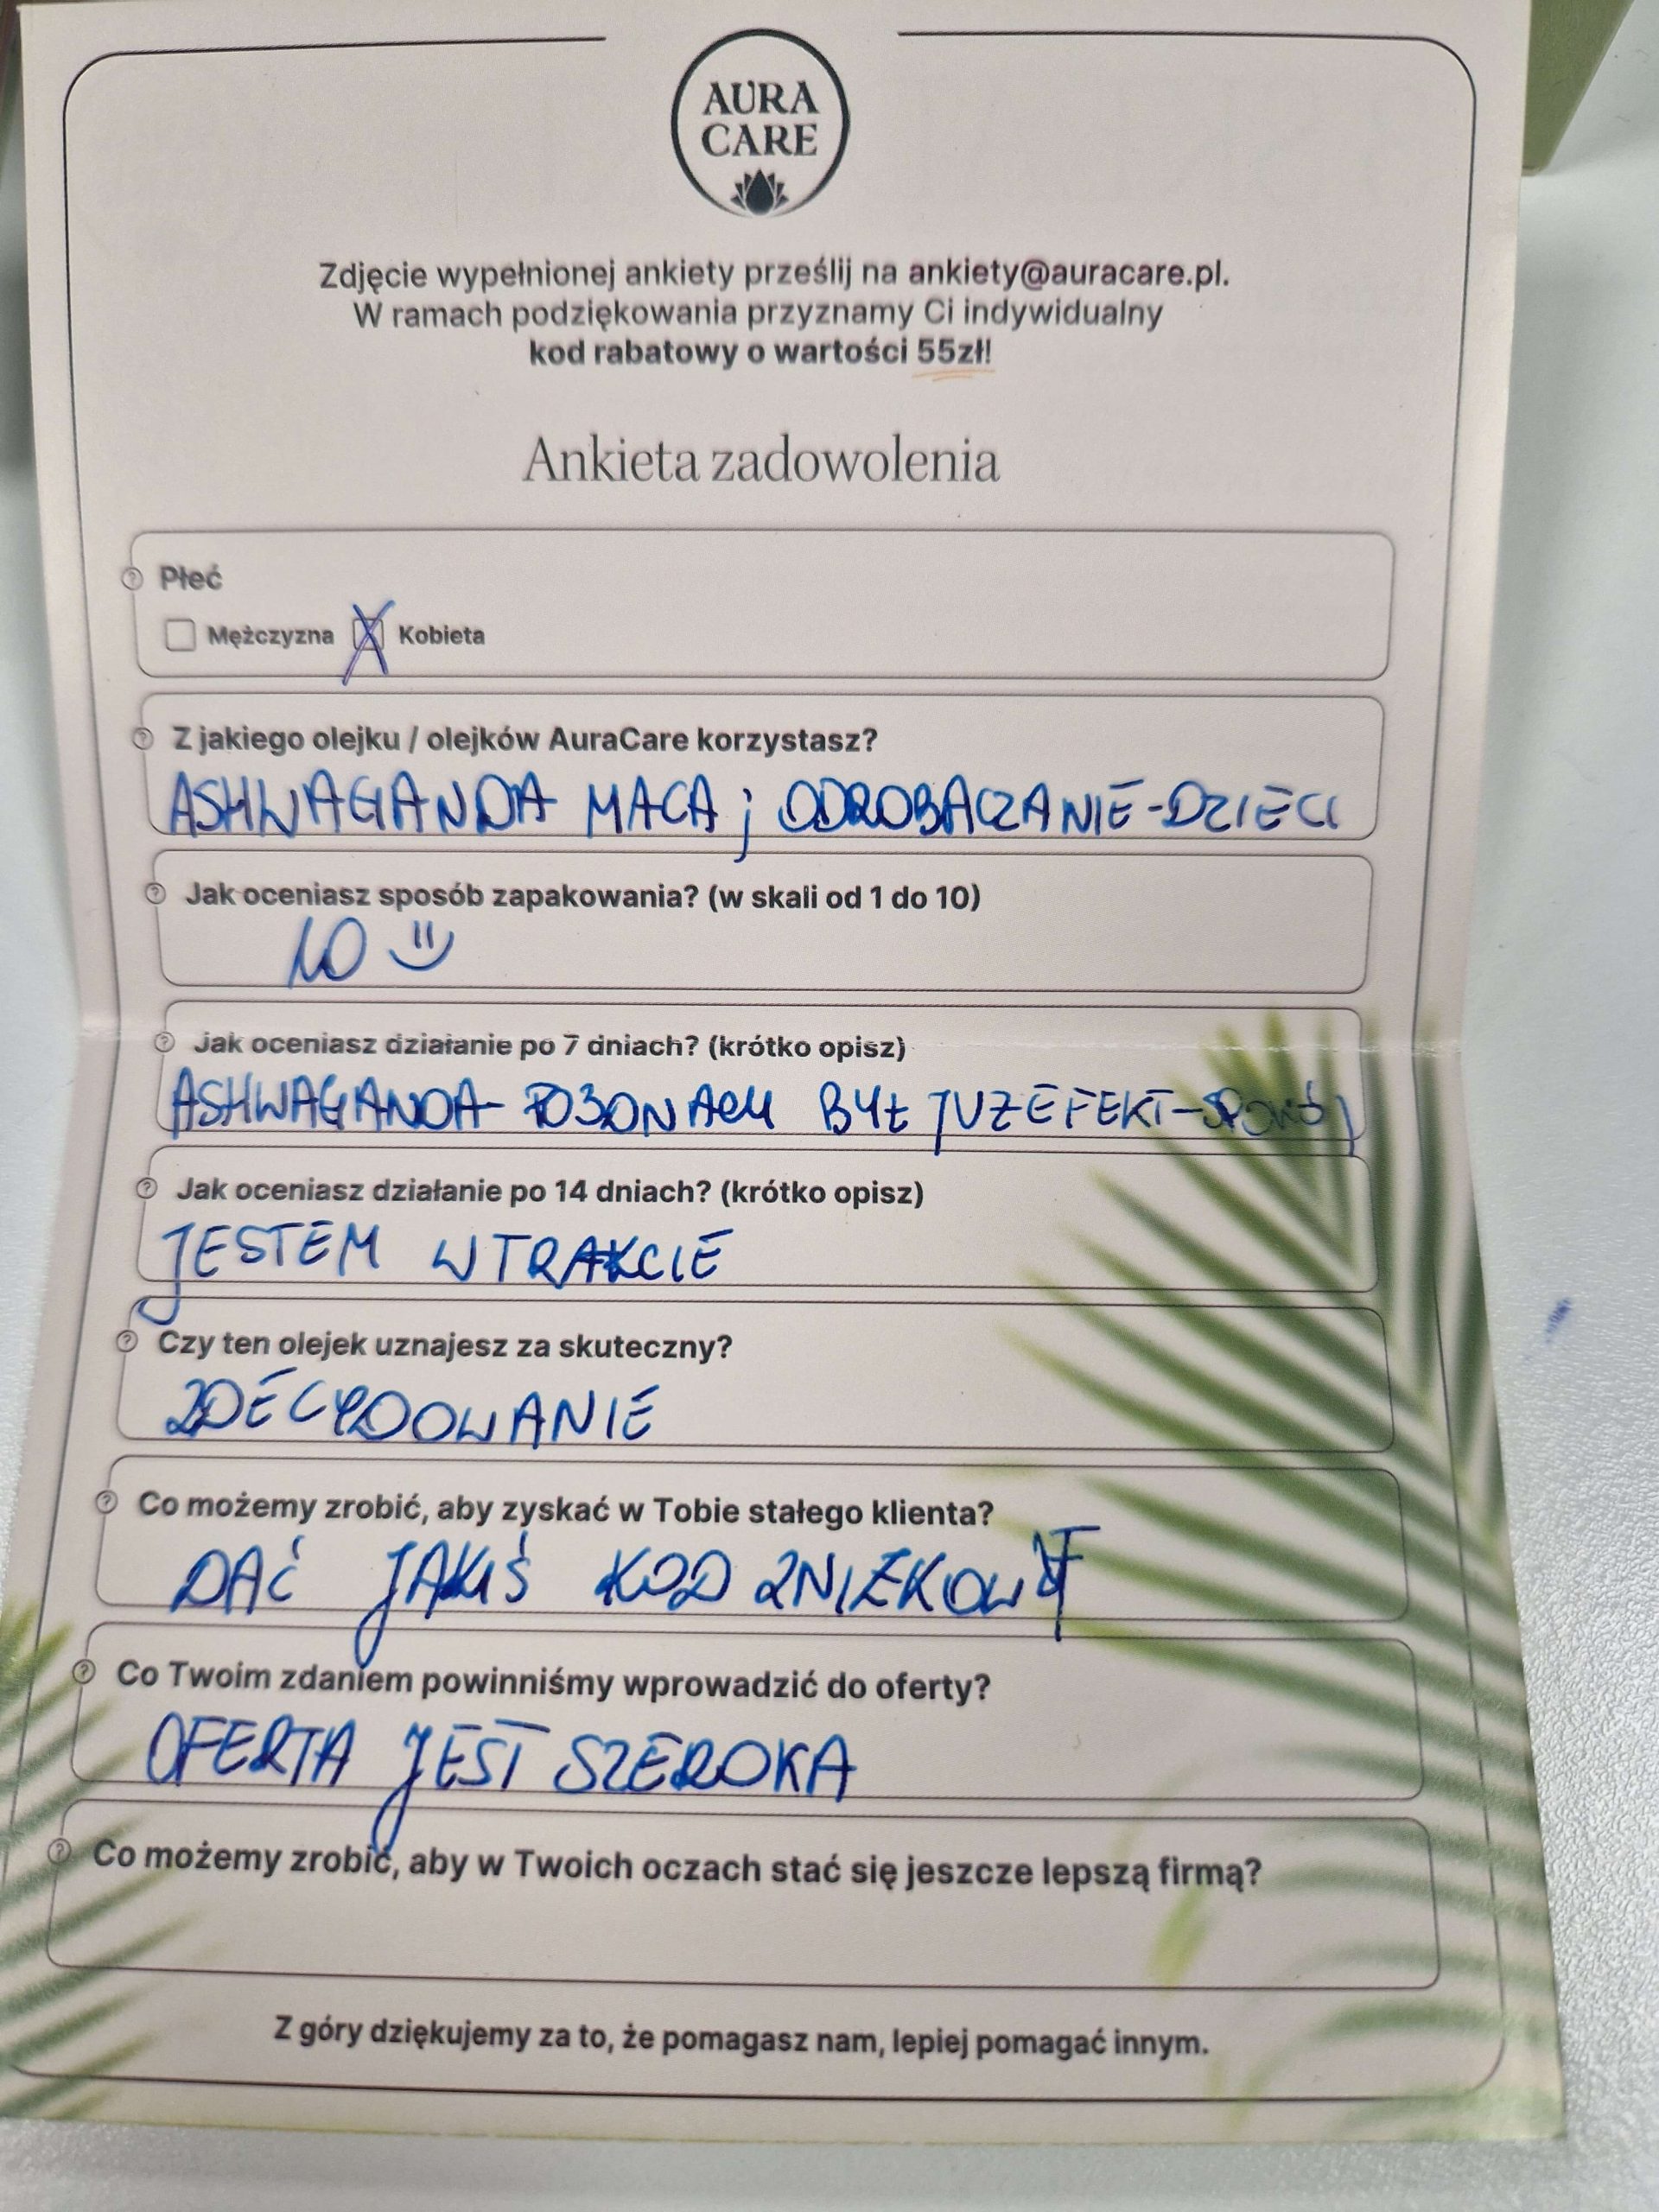 AURA
CARE
Zdjęcie wypełnionej ankiety prześlij na ankiety@auracare.pl.
W ramach podziękowania przyznamy Ci indywidualny
kod rabatowy o wartości 55zł!
Ankieta zadowolenia
Płeć
Mężczyzna X Kobieta
Z jakiego olejku / olejków AuraCare korzystasz?
ASHWAGANDA MACA ; ODROBACZANIE-DZIECI
Jak oceniasz sposób zapakowania? (w skali od 1 do 10)
10
Jak oceniasz działanie po 7 dniach? (krótko opisz)
ASHWAGANDA- PO3DNIACH BYŁ JUŻ EFEKT-SPOKÓJ
Jak oceniasz działanie po 14 dniach? (krótko opisz)
JESTEM W TRAKCIE
Czy ten olejek uznajesz za skuteczny?
ZDECYDOWANIE
Co możemy zrobić, aby zyskać w Tobie stałego klienta?
DAĆ JAKIŚ KOD ZNIŻKOWY
Co Twoim zdaniem powinniśmy wprowadzić do oferty?
OFERTA JEST SZEROKA
Co możemy zrobić, aby w Twoich oczach stać się jeszcze lepszą firmą?
Z góry dziękujemy za to, że pomagasz nam, lepiej pomagać innym.